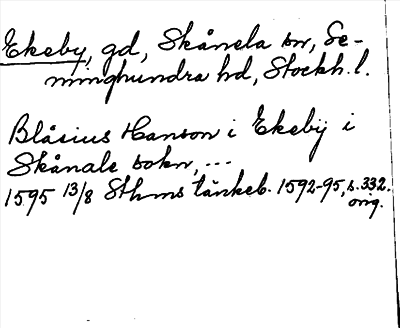 Ekeby, gd, Skånela sn, Se-
minghundra hd, Stockh. l.
Blåsius Hanson i Ekebÿ i
Skånale sokn, ...
1595 13/8 Sthms tänkeb. 1592-95, s. 332.
orig.